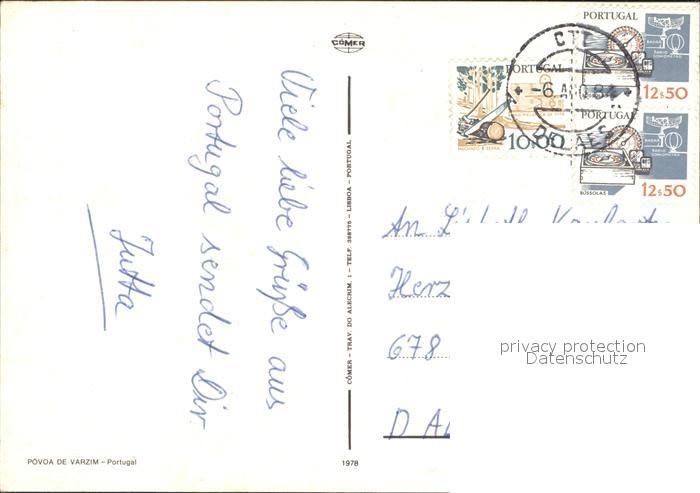 CÓMER
Viele liebe Grüße aus
Portugal sendet Dir
Jutta
CÓMER – TRAV. DO ALECRIM, 1 – TELF. 328775 – LISBOA – PORTUGAL
PÓVOA DE VARZIM – Portugal
1978
PORTUGAL
12$50
BÚSSOLAS
PORTUGAL
12$50
PORTUGAL
MACHADO E SERRA
10.00
CTT
-6 AGO 84
An
Herz
678
D
privacy protection
Datenschutz